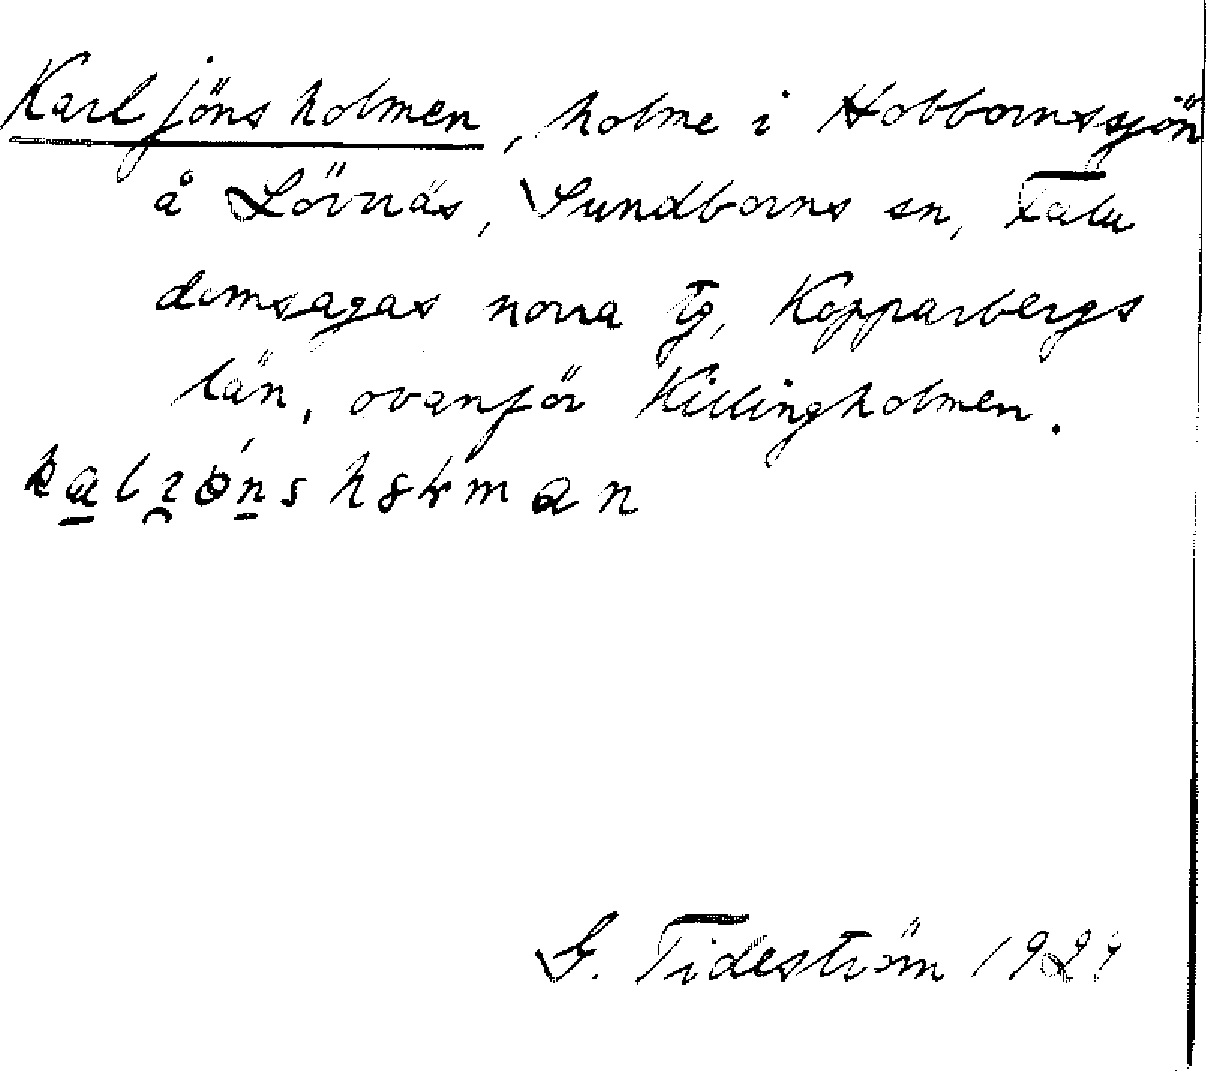 Karljönsholmen, holme i Hobbornssjön
å Lövnäs, Sundborns sn, Falu
domsagas norra tg, Kopparbergs
län, ovanför Killingholmen.
G. Tideström 1929